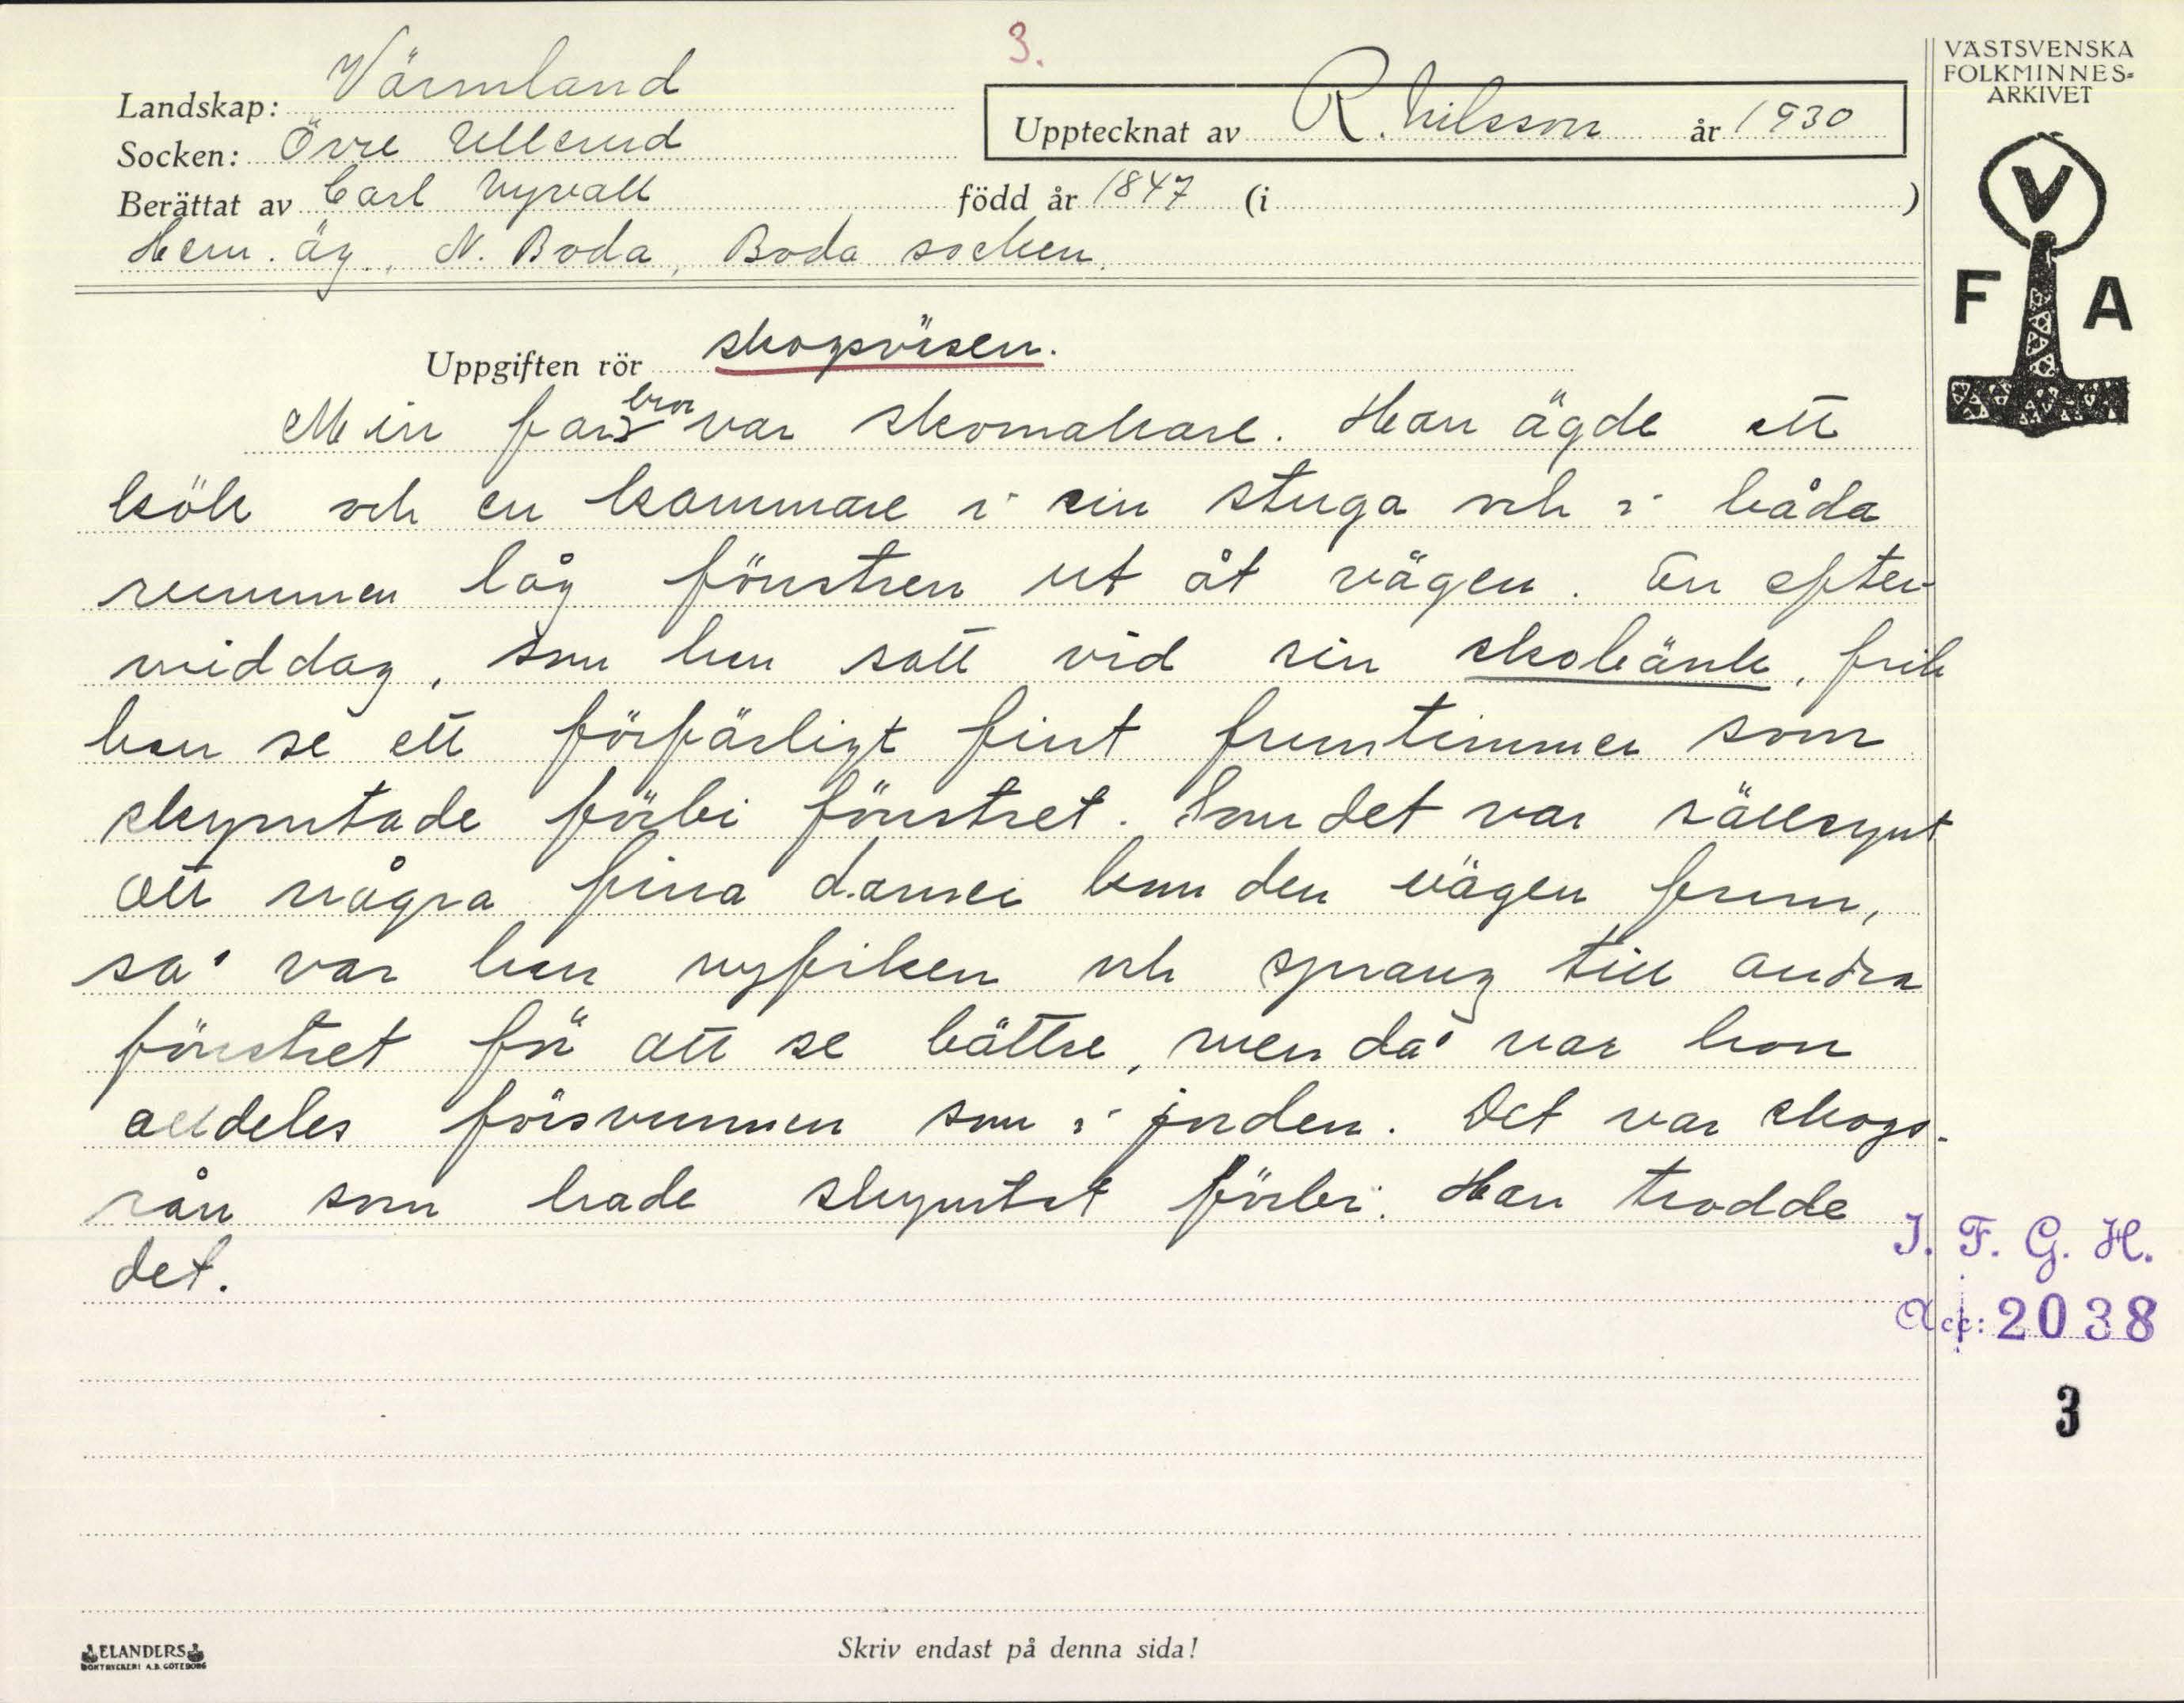 3.
VÄSTSVENSKA
FOLKMINNES-
ARKIVET
Landskap: Värmland
Upptecknat av R. Nilsson år 1930
Socken: Övre Ullerud
Berättat av Carl Nyvall född år 1847 (i )
Hem. äg., N. Boda, Boda socken.
V
F A
Uppgiften rör skogsväsen.
Min farsbror var skomakare. Han ägde ett
kök och en kammare i sin stuga och i båda
rummen låg fönstren ut åt vägen. En efter-
middag, som han satt vid sin skobänk, fick
han se ett förfärligt fint fruntimmer som
skymtade förbi fönstret. Som det var sällsynt
att några fina damer kom den vägen fram,
så var han nyfiken och sprang till andra
fönstret för att se bättre, men då var hon
alldeles försvunnen som i jorden. Det var skogs-
rån som hade skymtat förbi. Han trodde
det.
I. F. G. H.
Acc: 2038
3
Skriv endast på denna sida!
ELANDERS
BOKTRYCKERI A.B. GÖTEBORG